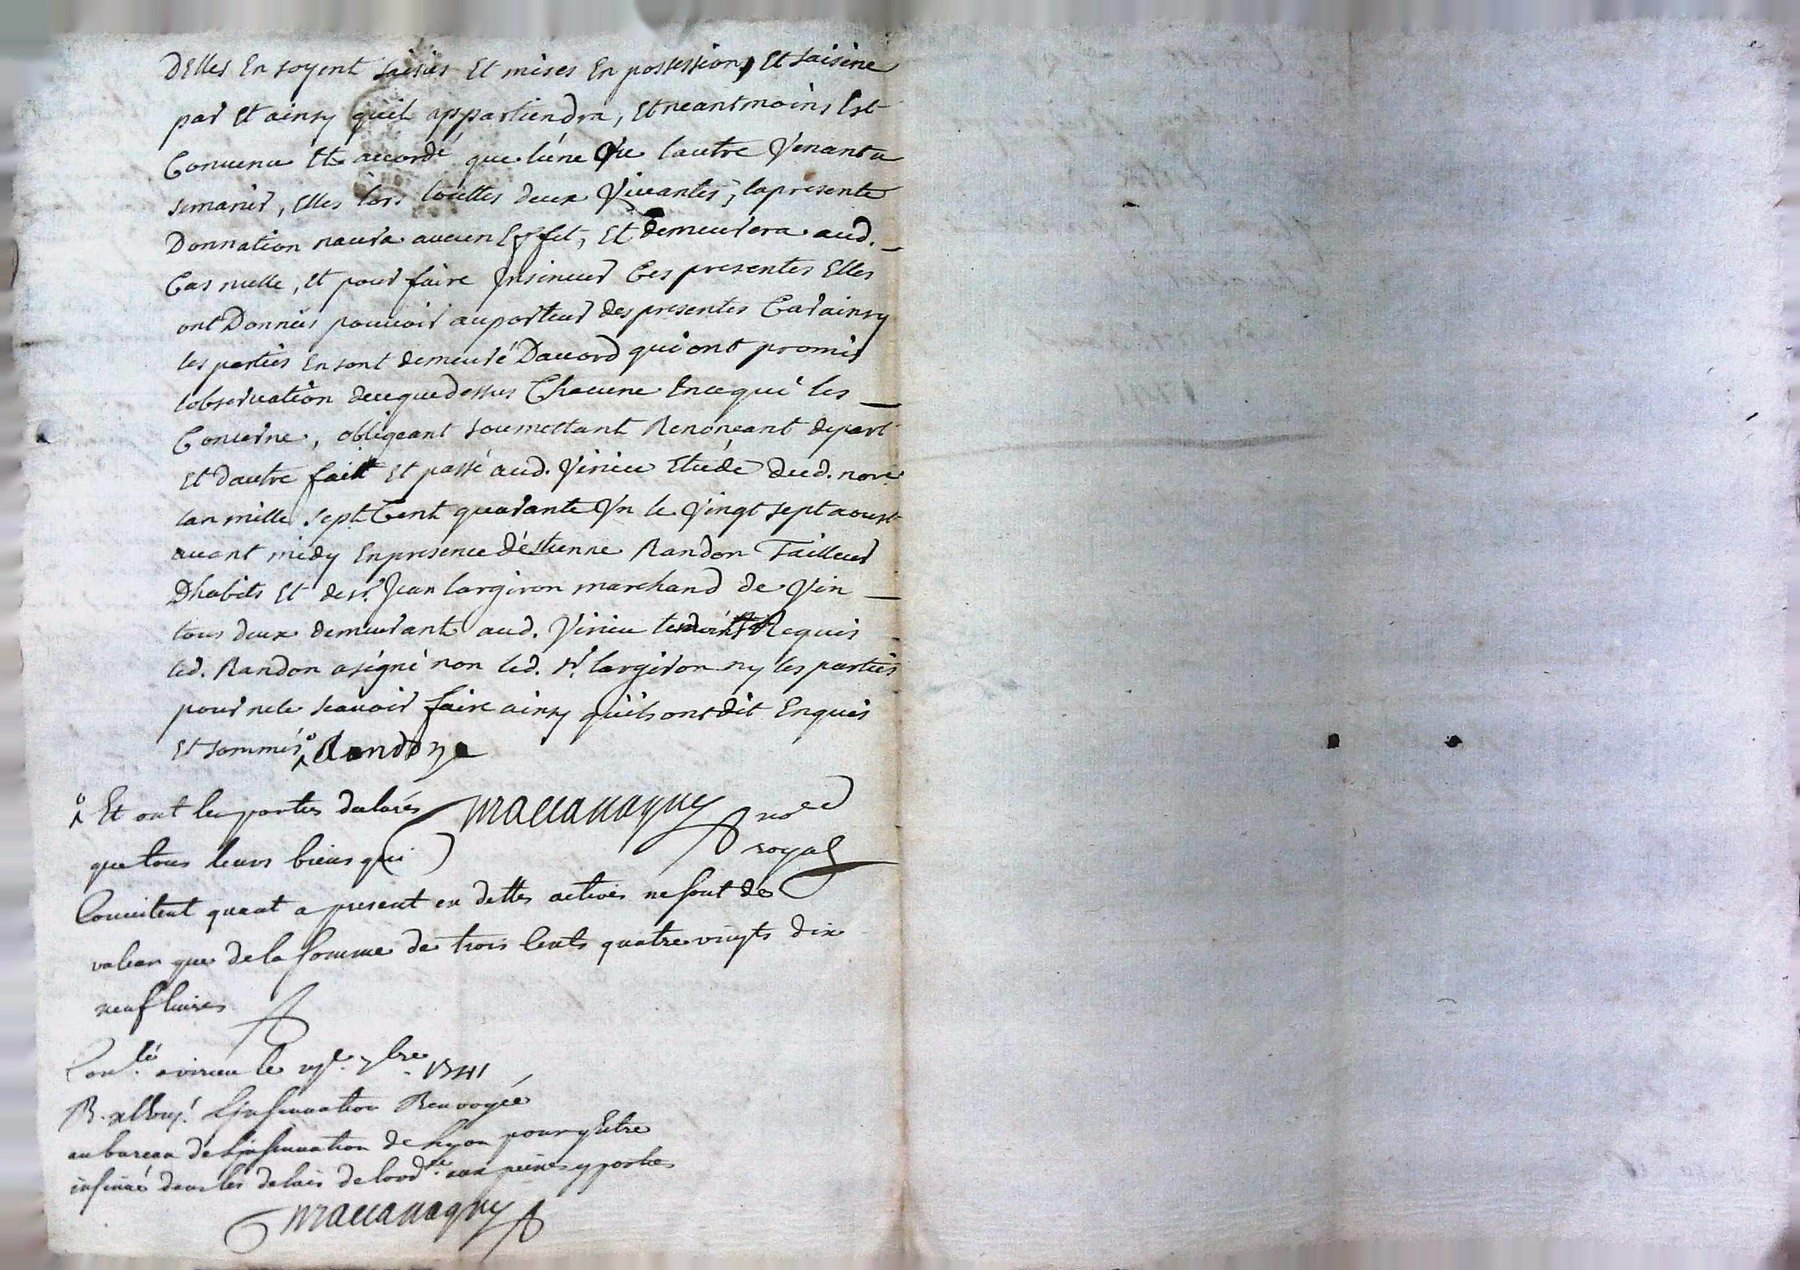 Delles En soyent saisies Et mises En possession, Et saisine
par Et ainsy quil appartiendra, Et neantmoins Est
Convenu Et accordé que lúne ou lautre Venant a
semarier, Elles lors Vivantes, la presente
Donnation naura aucun Effet, Et demeurera aud.
Cas nulle, Et pour faire Insinuer Ces presentes Elles
ont Données pouvoir au porteur des presentes Car ainsy
les parties En sont demeuré Daccord qui ont promis
lobservation de ceque dessus Chacune En ce qui les
Concerne, obligeant soumettant Renonçant de part
Et dautre fait Et passé aud. Virieu Etude dud. nore
lan mille sept Cent quarante Un le Vingt sept aoust
avant midy En presence déstienne Randon Tailleur
Dhabits Et de sr. Jean largiron marchand de Vin
tous deux demeurant aud. Virieu Requis
led. Randon a signé non led. sr. largiron ny les parties
pour ne le scavoir faire ainsy quils ont dit Enquis
Et sommés Randon
Et ont les parties declarés
que tous leurs biens qui
Consistent quant a present en dettes actives ne sont de
valeur que de la somme de trois Cents quatre vingts dix
neuf livres
royal
Conlé a virieu le 7bre 1741
R. Linsinuation Renvoyée
au bureau de Linsinuation de Lyon pour y Estre
insinué dans les delais de lordce aux peines y portés